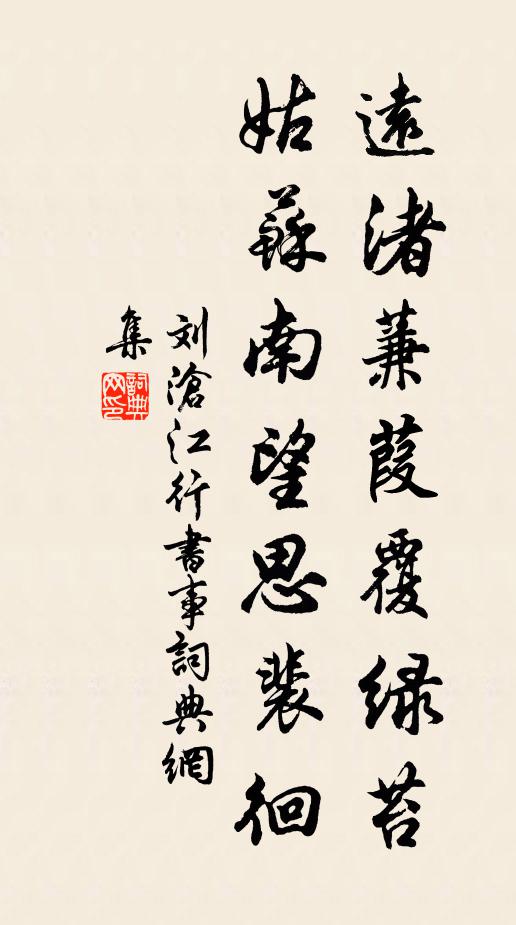 遠渚蒹葭覆緑苔
姑蘇南望思裴徊
刘滄江行書事詞典網
集
詞典網印